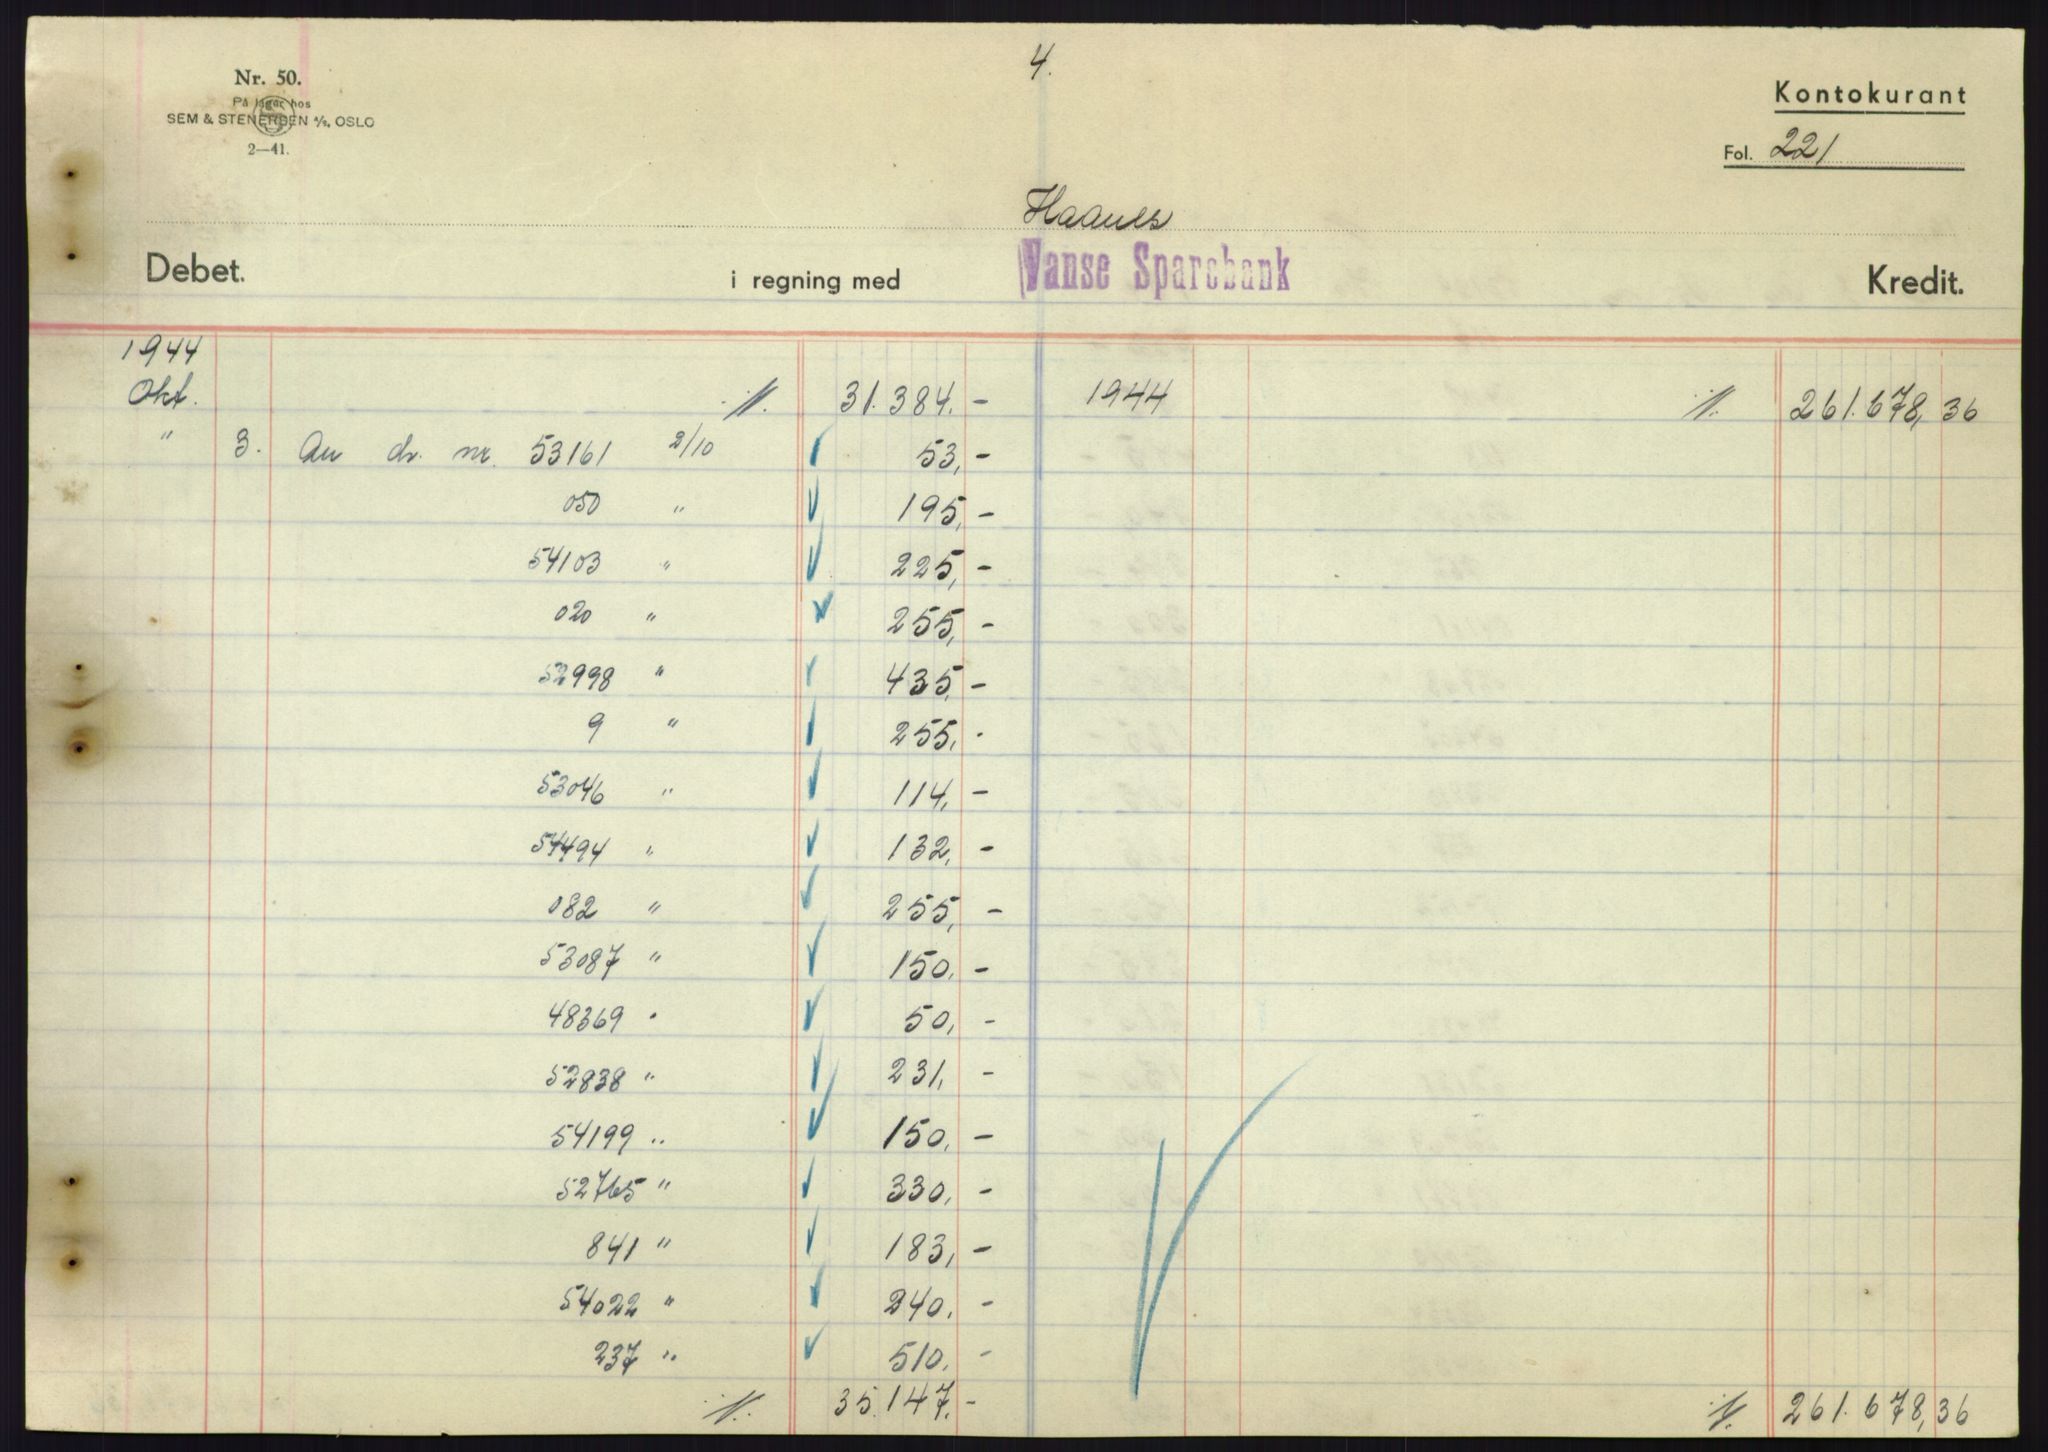 4.
Nr. 50.
På lager hos
SEM & STENERSEN A/S, OSLO
2—41.
Kontokurant
Fol. 221
Haanes
Debet. i regning med Vanse Sparebank Kredit.
1944
Okt. ./. 31.384.- 1944 ./. 261.678,36
" 3. An ch. nr. 53161 2/10 53,-
050 " 195,-
54103 " 225,-
020 " 255,-
52998 " 435,-
9 " 255,-
53046 " 114,-
54494 " 132,-
082 " 255,-
53087 " 150,-
48369 " 50,-
52838 " 231,-
54199 " 150,-
52765 " 330,-
841 " 183,-
54022 " 240,-
237 " 510,-
./. 35.147,- ./. 261.678,36